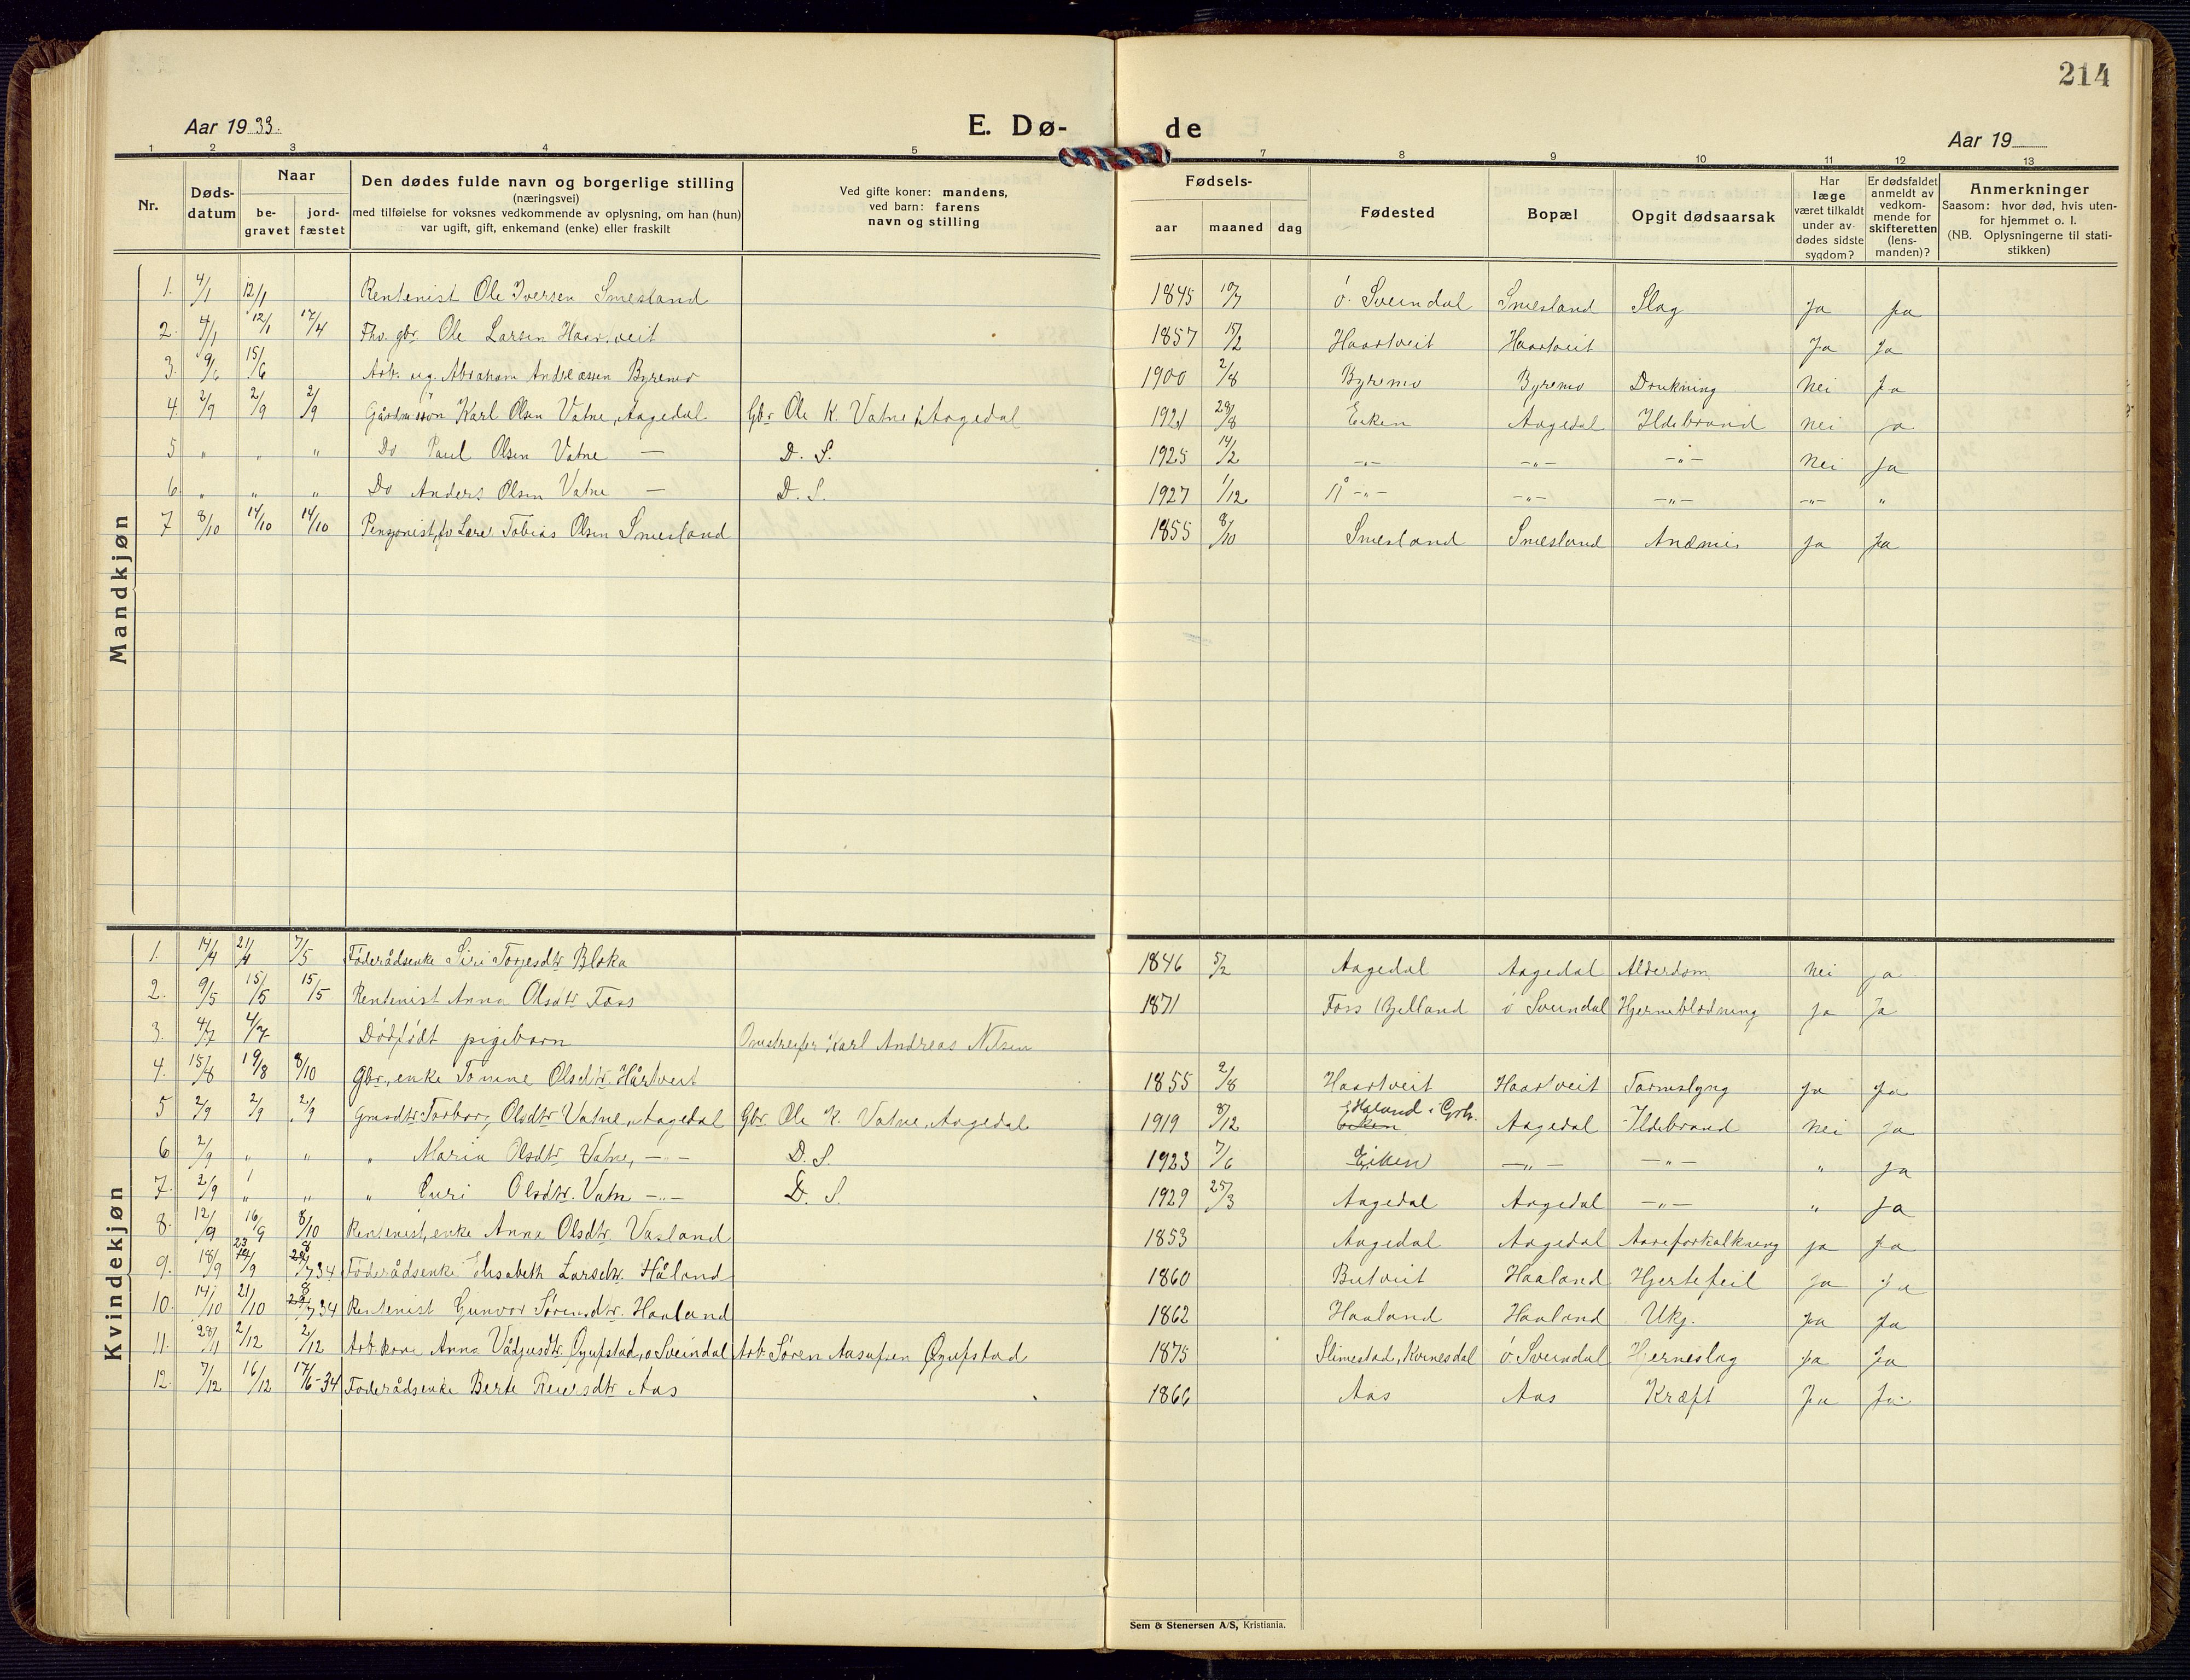 214
Aar 1933.
E. Dø-
de
Aar 19
1 2 3 4 5 7 8 9 10 11 12 13
Nr.
Døds-
datum
Naar
be-
gravet
jord-
fæstet
Den dødes fulde navn og borgerlige stilling
(næringsvei)
med tilføielse for voksnes vedkommende av oplysning, om han (hun)
var ugift, gift, enkemand (enke) eller fraskilt
Ved gifte koner: mandens,
ved barn: farens
navn og stilling
Fødsels-
aar maaned dag
Fødested
Bopæl
Opgit dødsaarsak
Har
læge
været tilkaldt
under av-
dødes sidste
sygdom?
Er dødsfaldet
anmeldt av
vedkom-
mende for
skifteretten
(lens-
manden)?
Anmerkninger
Saasom: hvor død, hvis uten-
for hjemmet o. l.
(NB. Oplysningerne til stati-
stikken)
Mandkjøn
1. 4/1 12/1 Rentenist Ole Iversen Smesland 1845 10/7 ó. Sveindal Smesland Slag ja ja
2. 4/1 12/1 17/4 Fhv. gbr. Ole Larsen Haartveit 1857 15/2 Haartveit Haartveit Ja Ja
3. 9/6 15/6 Arb. ug. Abraham Andreassen Byremo 1900 2/8 Byremo Byremo Drukning Nei Ja
4. 2/9 2/9 2/9 Gårdm.søn Karl Olsen Vatne, Aagedal Gbr. Ole K. Vatne, Aagedal 1921 28/8 Eiken Aagedal Ildebrand Nei ja
5 " " " Do Paul Olsen Vatne — D. S. 1925 14/2 -"- -"- -"- Nei Ja
6. " " " Do Anders Olsen Vatne — D. S. 1927 1/12 -"- -"- -"- -"- "
7 8/10 14/10 14/10 Pensjonist, fv Lærer Tobias Olsen Smesland 1855 8/10 Smesland Smesland Anæmi ja Ja
Kvindekjøn
1. 14/4 21/4 7/5 Føderådsenke Siri Torjesdtr Bloka 1846 5/2 Aagedal Aagedal Alderdom Nei ja
2. 9/5 15/5 15/5 Rentenist Anna Olsdtr Foss 1871 Foss i Bjelland ó Sveindal Hjerneblødning ja Ja
3. 4/7 4/7 Dødfødt pigebarn Omstreifer Karl Andreas Nilsen
4. 15/8 19/8 8/10 Gbr., enke Tomine Olsdtr. Hårtveit 1855 2/8 Haartveit Haartveit Tarmslyng ja Ja
5 2/9 2/9 2/9 Gmsdtr. Torborg Olsdtr Vatne, Aagedal Gbr. Ole K. Vatne, Aagedal 1919 8/12 Eiken Haland i Grh. Aagedal Ildebrand Nei Ja
6 2/9 " " " Maria Olsdtr Vatne, -"- D. S. 1923 7/6 Eiken -"- -"- " Ja
7. 2/9 " " " Guri Olsdtr. Vatn -"- D. S. 1929 25/3 Aagedal Aagedal -"- " Ja
8. 12/9 16/9 8/10 Rentenist, enke Anna Olsdtr. Vasland 1853 Aagedal Aagedal Aareforkalkning ja Ja
9. 18/9 23/9 8/7 34 Føderådsenke Elisabeth Larsdtr. Håland 1860 Butveit Haaland Hjertefeil ja Ja
10. 14/10 21/10 8/7 34 Rentenist Gunvor Sørensdtr. Haaland 1862 Haaland Haaland Ukj. Ja Ja
11. 2/12 2/12 Arb.kone Anna Vådjusdtr. Øgufstad, ø Sveindal Arb. Søren Aasufsen Øgufstad 1875 Slimestad, Kvinesdal ó. Sveindal Hjerneslag ja Ja
12. 7/12 16/12 17/6-34 Føderådsenke Berte Reiersdtr Aas 1866 Aas Aas Kræft Ja Ja
Sem & Stenersen A/S, Kristiania.